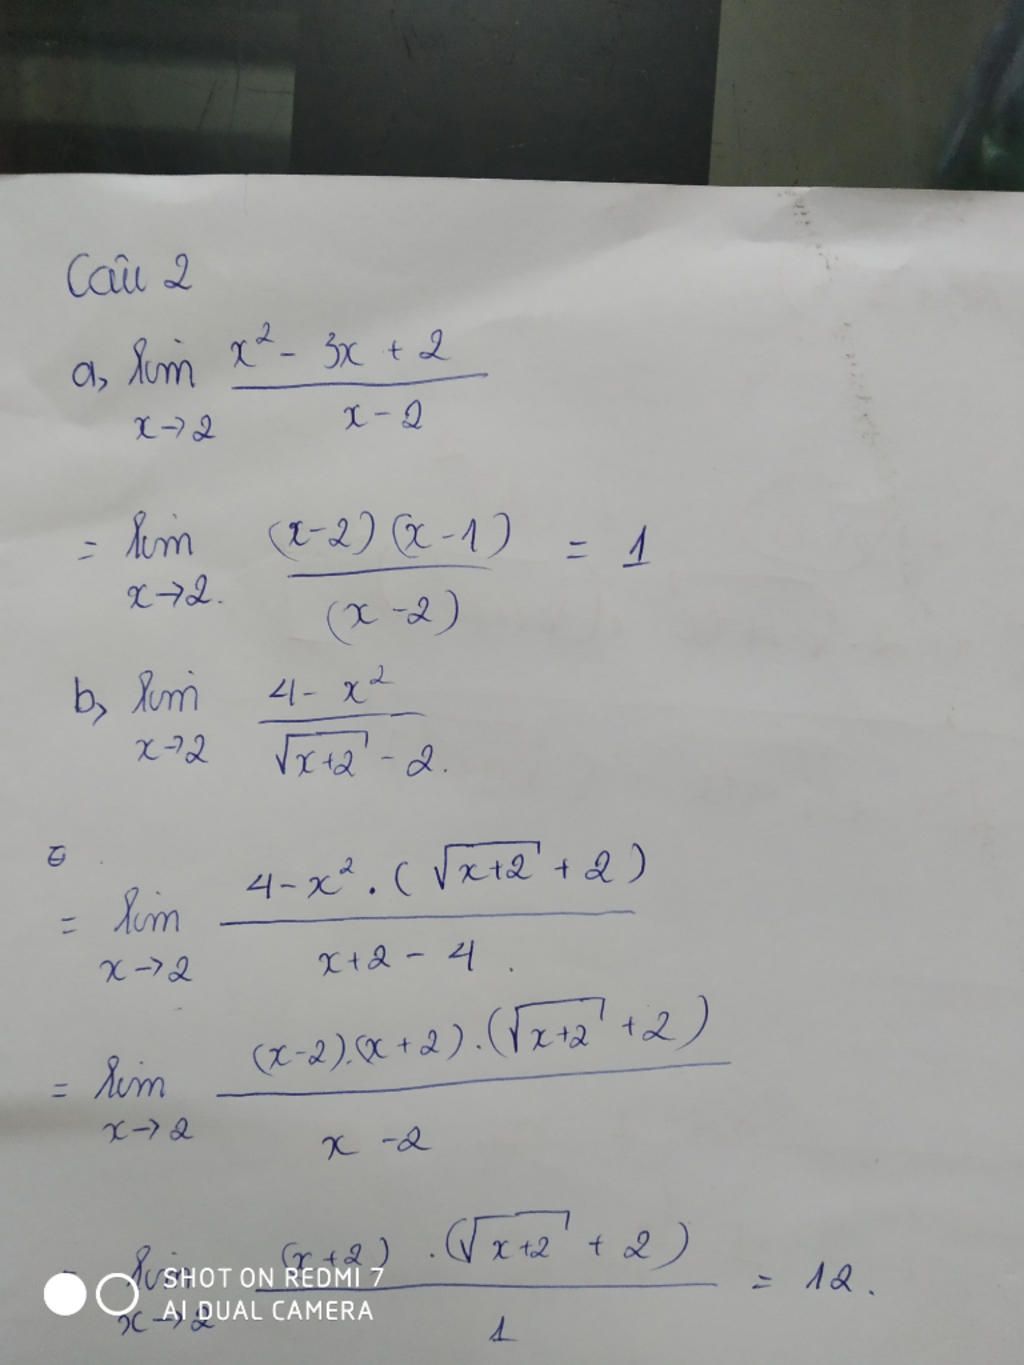 Câu 2
a, lim x² - 3x + 2
x→2 x - 2
= lim (x-2)(x-1) = 1
x→2. (x-2)
b, lim 4 - x²
x→2 √x+2 - 2.
= lim 4-x² . (√x+2 + 2)
x→2 x+2 - 4.
= lim (x-2).(x+2).(√x+2 + 2)
x→2 x - 2
lim (x+2) . (√x+2 + 2) = 12.
x→2 1
SHOT ON REDMI 7
AI DUAL CAMERA